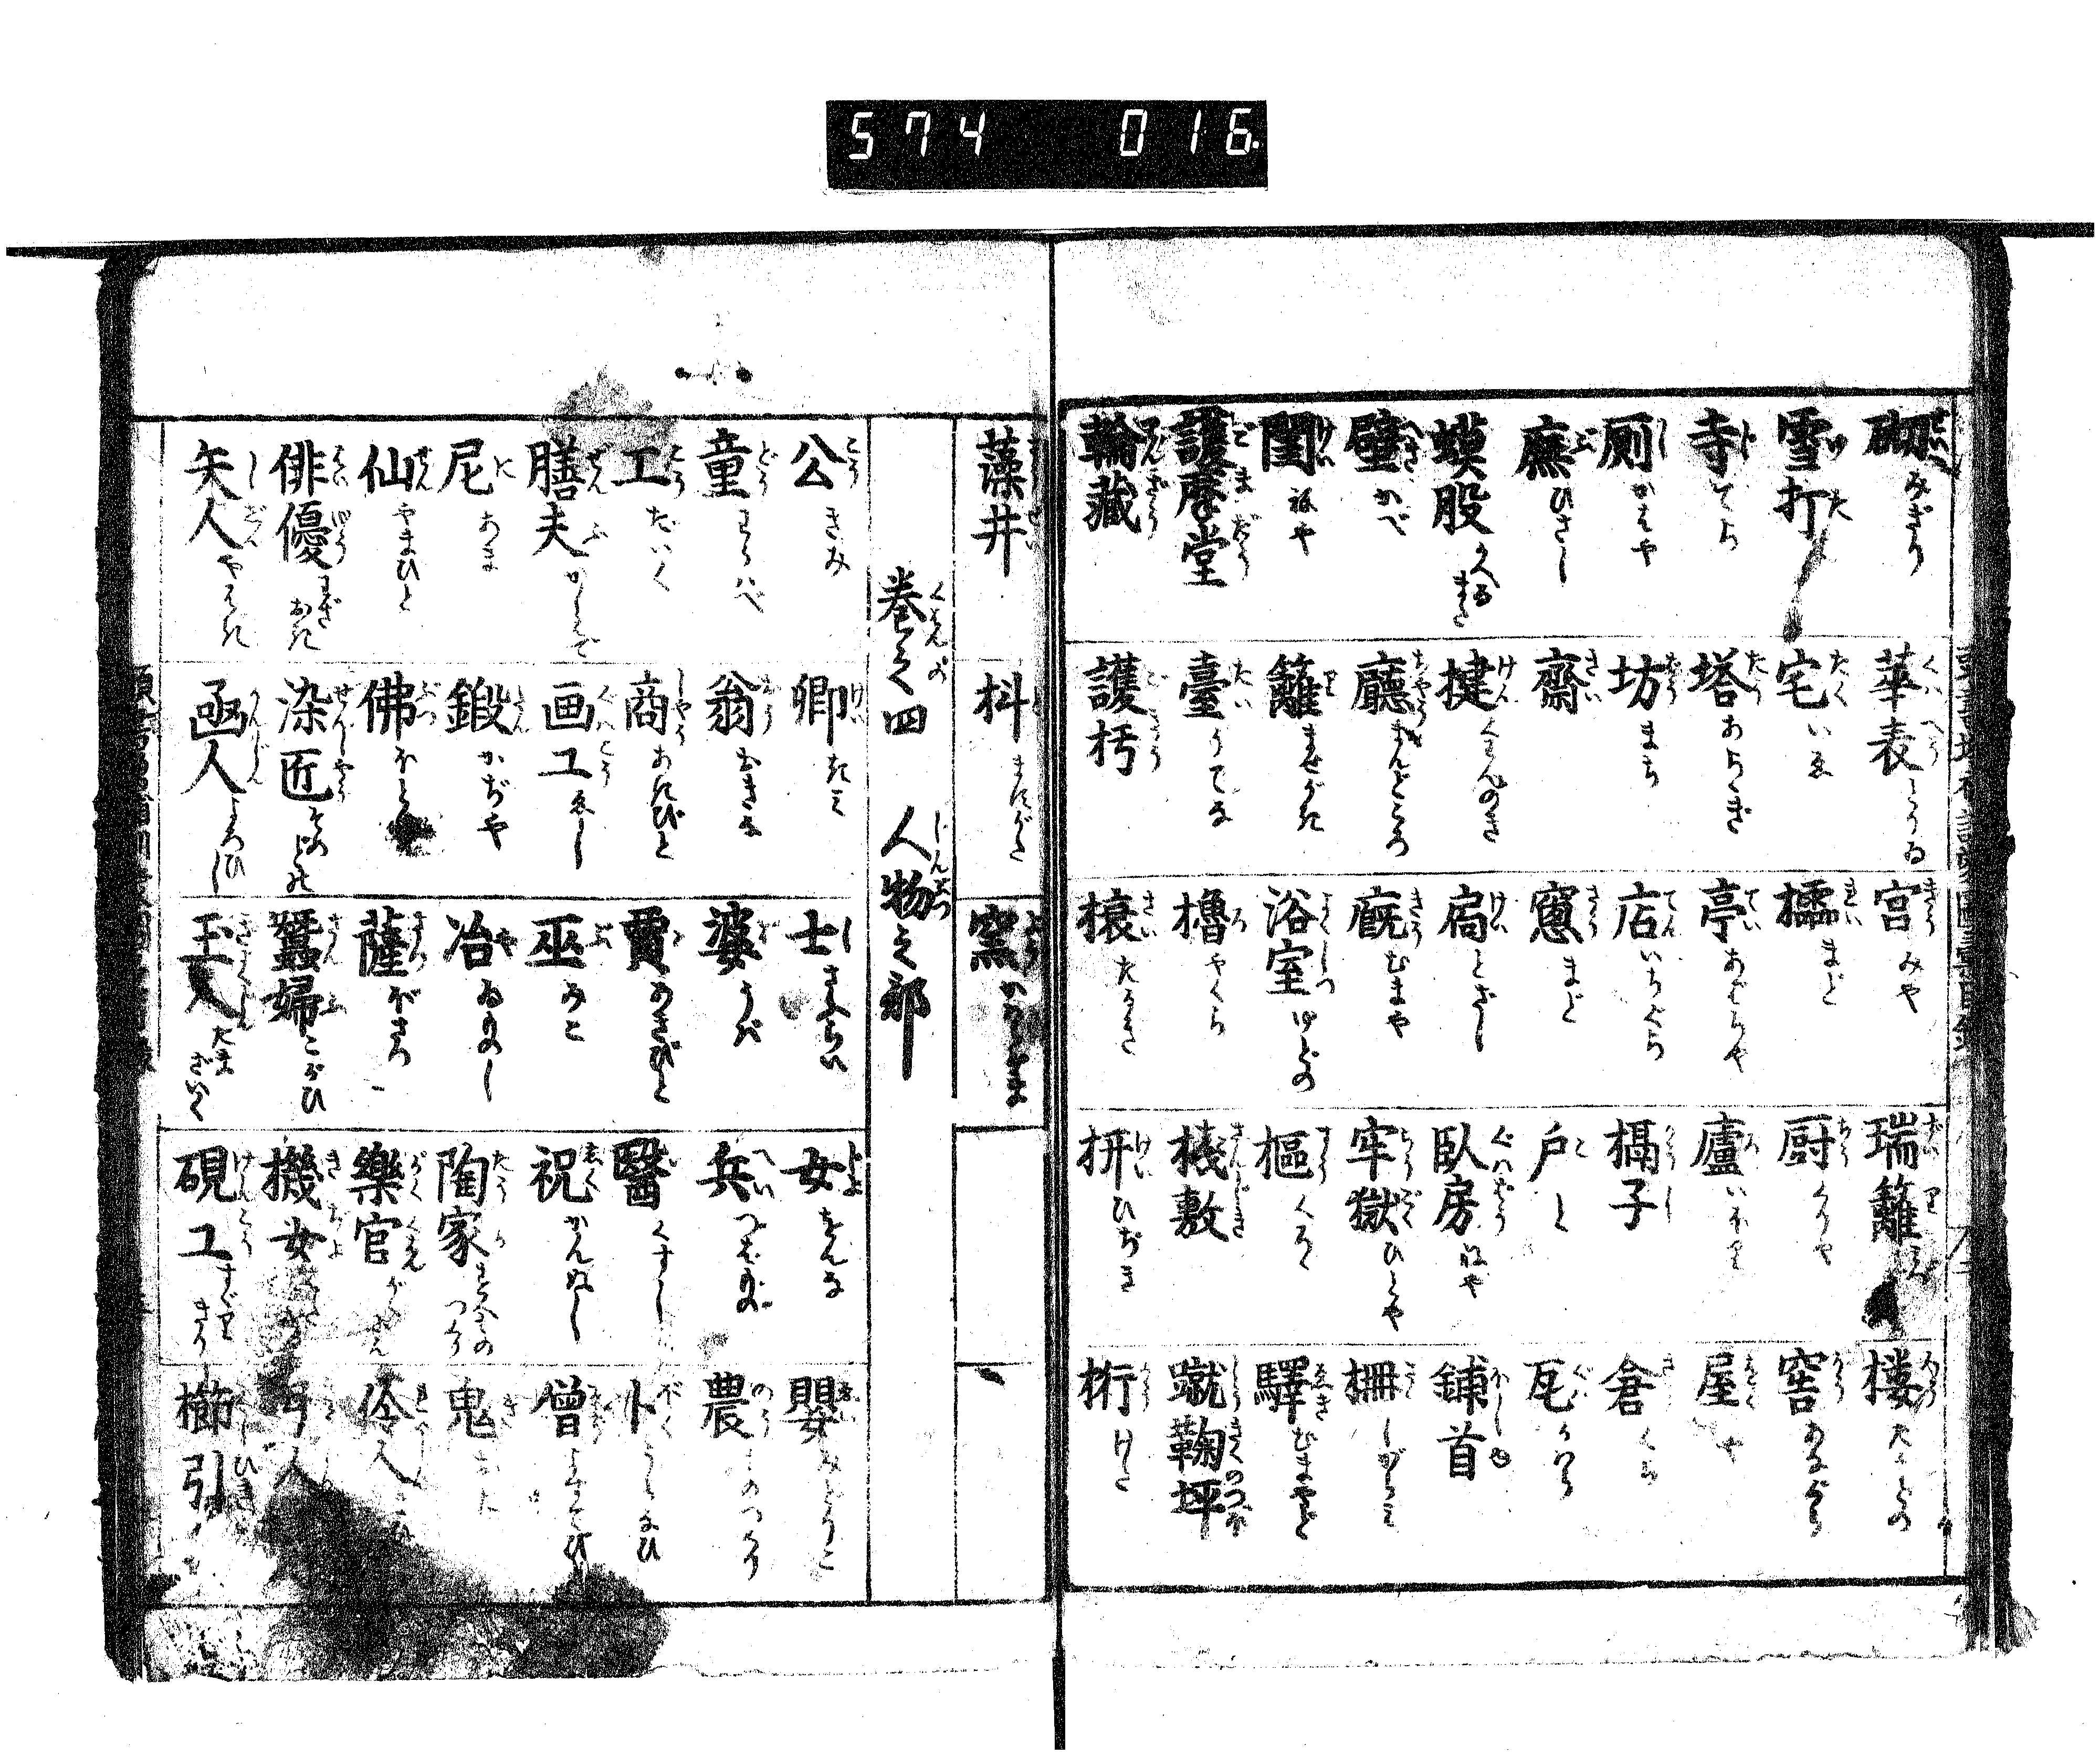 574 016
砌 みぎり
雪打
寺 てら
厠 かはや
廡 ひさし
蟆股 かへるまた
壁 かべ
閨 ねや
護摩堂
輪藏
華表 とりゐ
宅 いゑ
塔 あらゝぎ
坊 まち
齋
揵 くわんのき
廳 まんどころ
籬 ませがき
臺 うてな
護朽
宮 みや
櫺 まど
亭 あばらや
店 いちぐら
窻 まど
扃 とざし
廐 むまや
浴室 ゆどの
櫓 やぐら
榱 たるき
瑞籬
厨 くりや
廬 いほり
槅子
戸 と
臥房 ねや
牢獄 ひとや
樞 くるゝ
棧敷
枅 ひぢき
楼 たかどの
窖 あなぐら
屋 や
倉 くら
瓦 かはら
鋪首
柵 しがらみ
驛 むまやど
蹴鞠坪
桁 けた
藻井
枓 ますがた
窯 かはらがま
巻之四 人物之部
公 きみ
童 わらハべ
工 だいく
膳夫 かしはで
尼 あま
仙 やまひと
俳優 わざおき
矢人 やはぎ
卿 きみ
翁 おきな
商 あきびと
画工 ゑし
鍛 かぢや
佛 ほとけ
染匠 そめどの
凾人 よろひし
士 さふらい
婆 うば
賈 あきびと
巫 みこ
冶 ゐものし
薩 ぼさつ
蠶婦 こがひ
玉人 たまざいく
女 をんな
兵 つはもの
醫 くすし
祝 かんぬし
陶家 すへものつくり
樂官
機女
硯工 すゞりきり
嬰 みどりこ
農 ものつくり
卜 うらなひ
僧 よすてびと
鬼 おに
伶人
弓人
櫛引